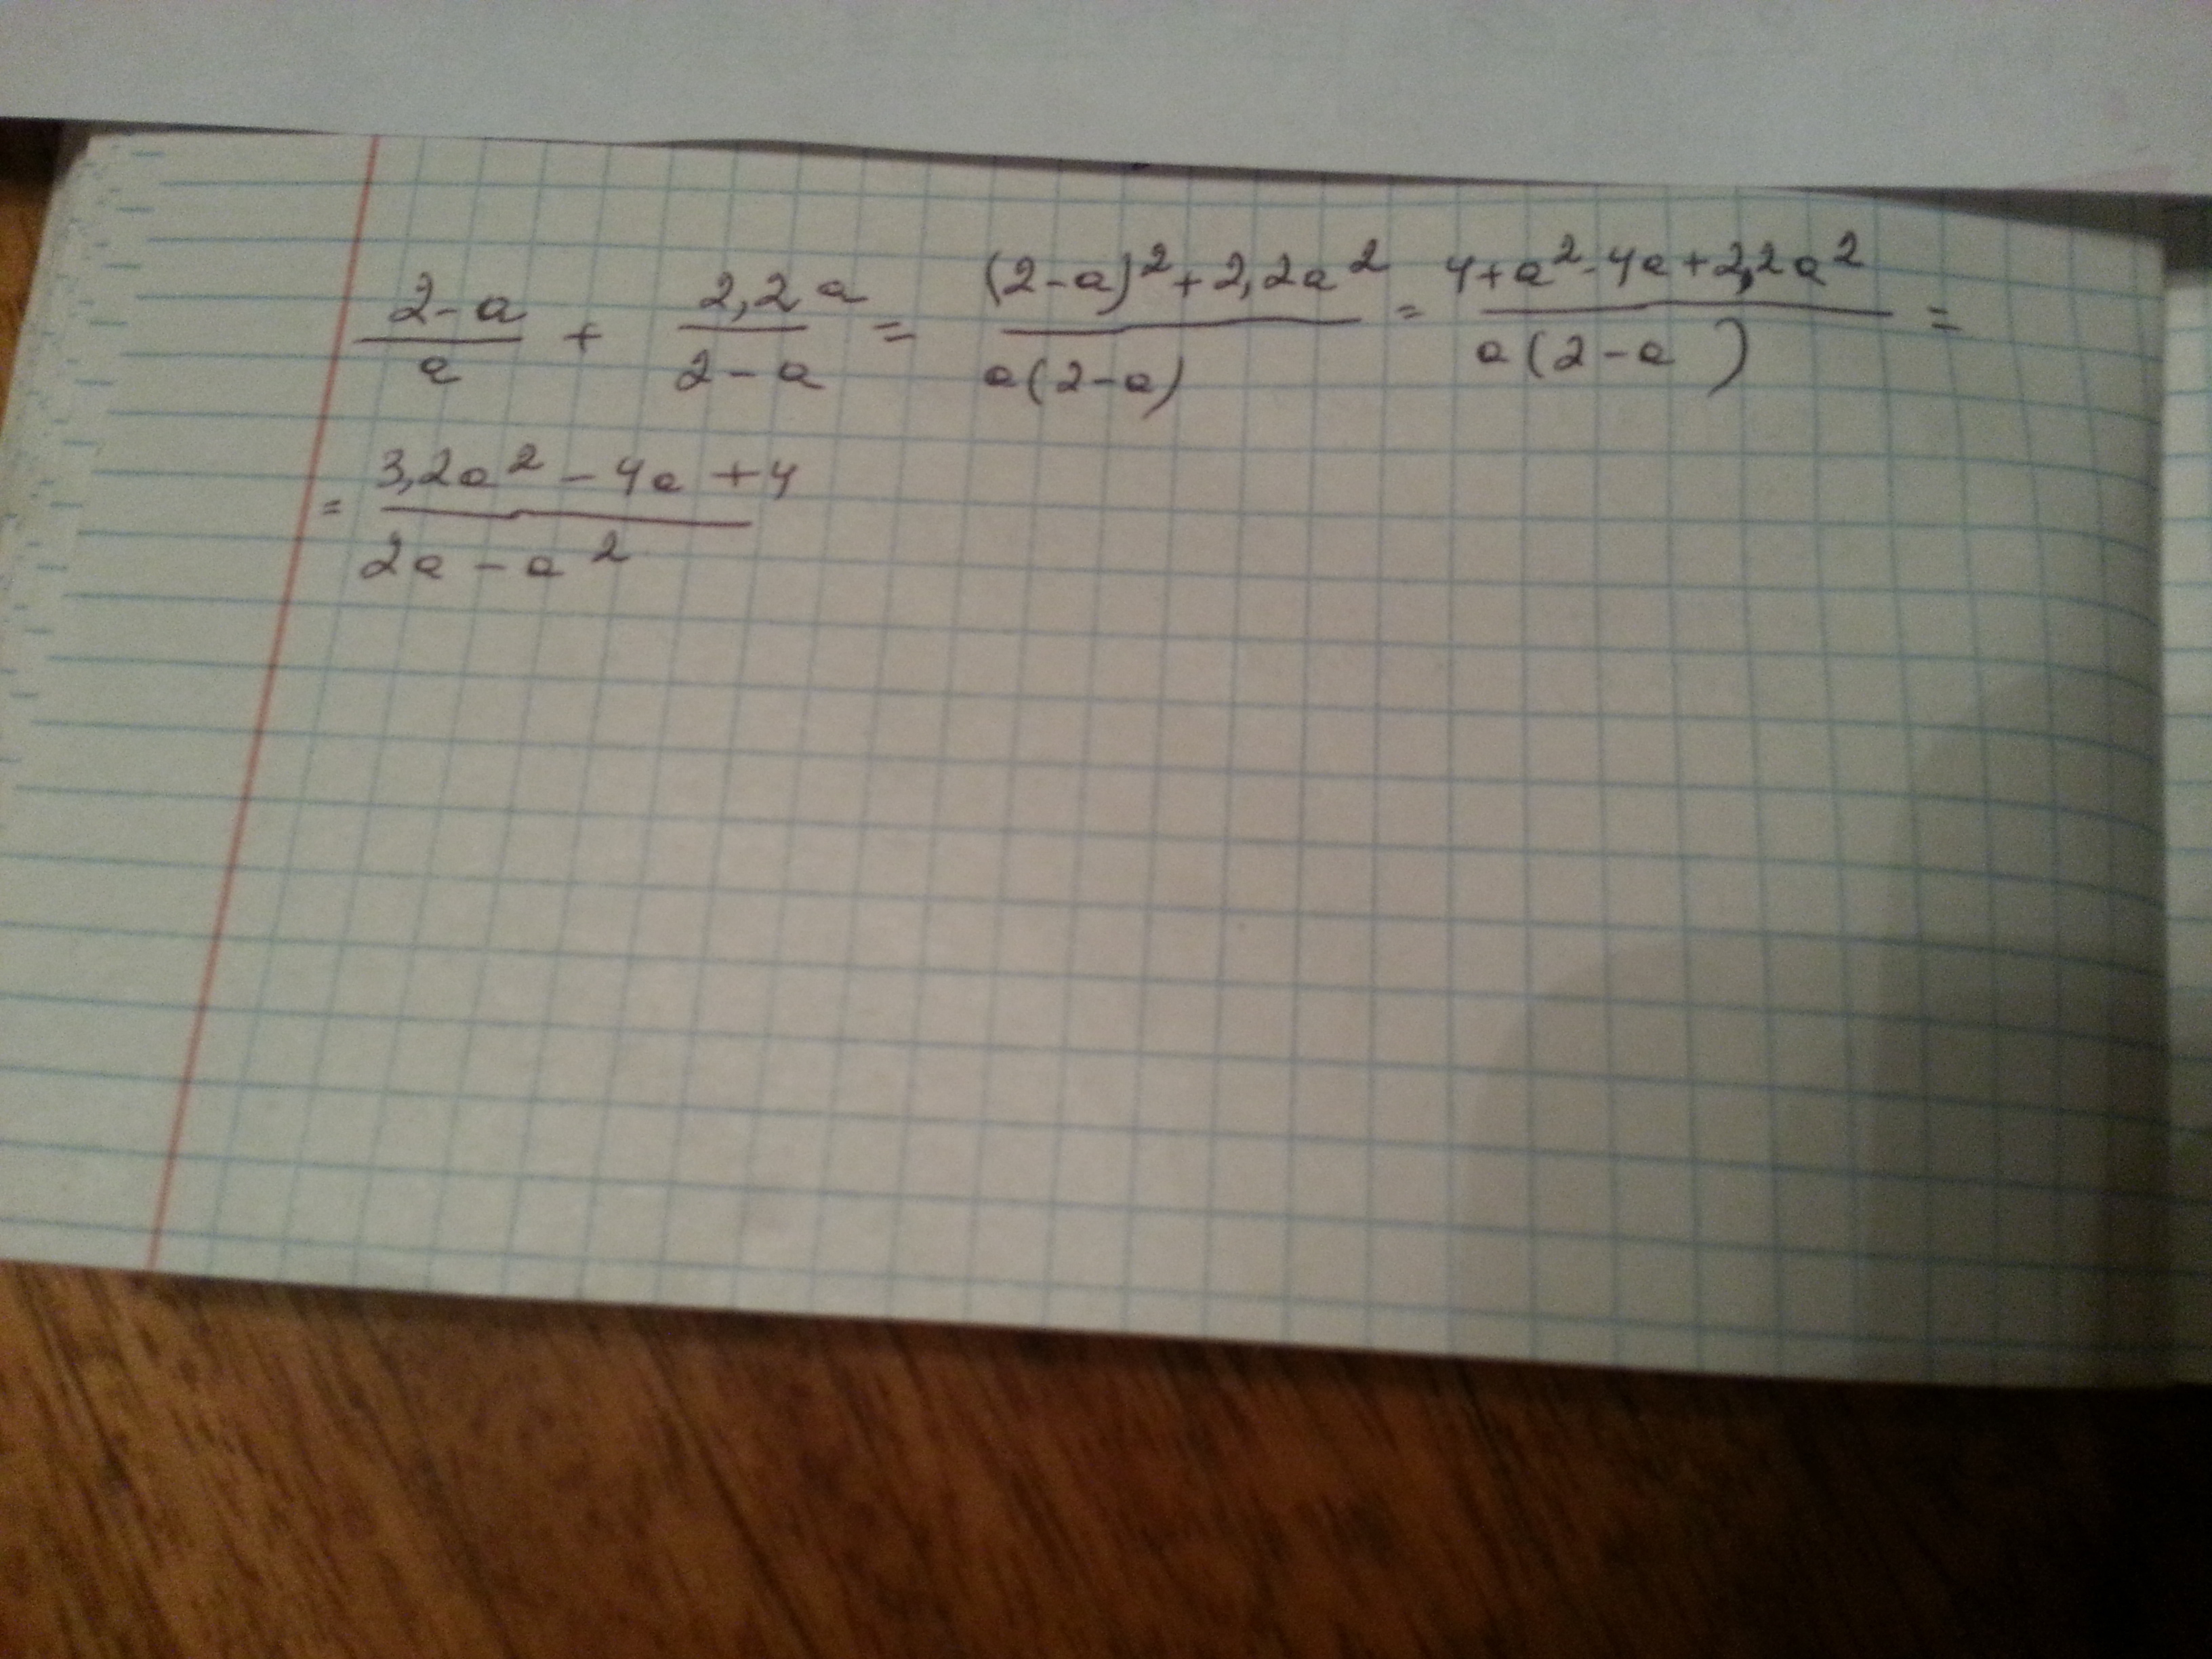 (2-a)/a + 2,2a/(2-a) = ((2-a)²+2,2a²)/(a(2-a)) = (4+a²-4a+2,2a²)/(a(2-a)) =
= (3,2a²-4a+4)/(2a-a²)